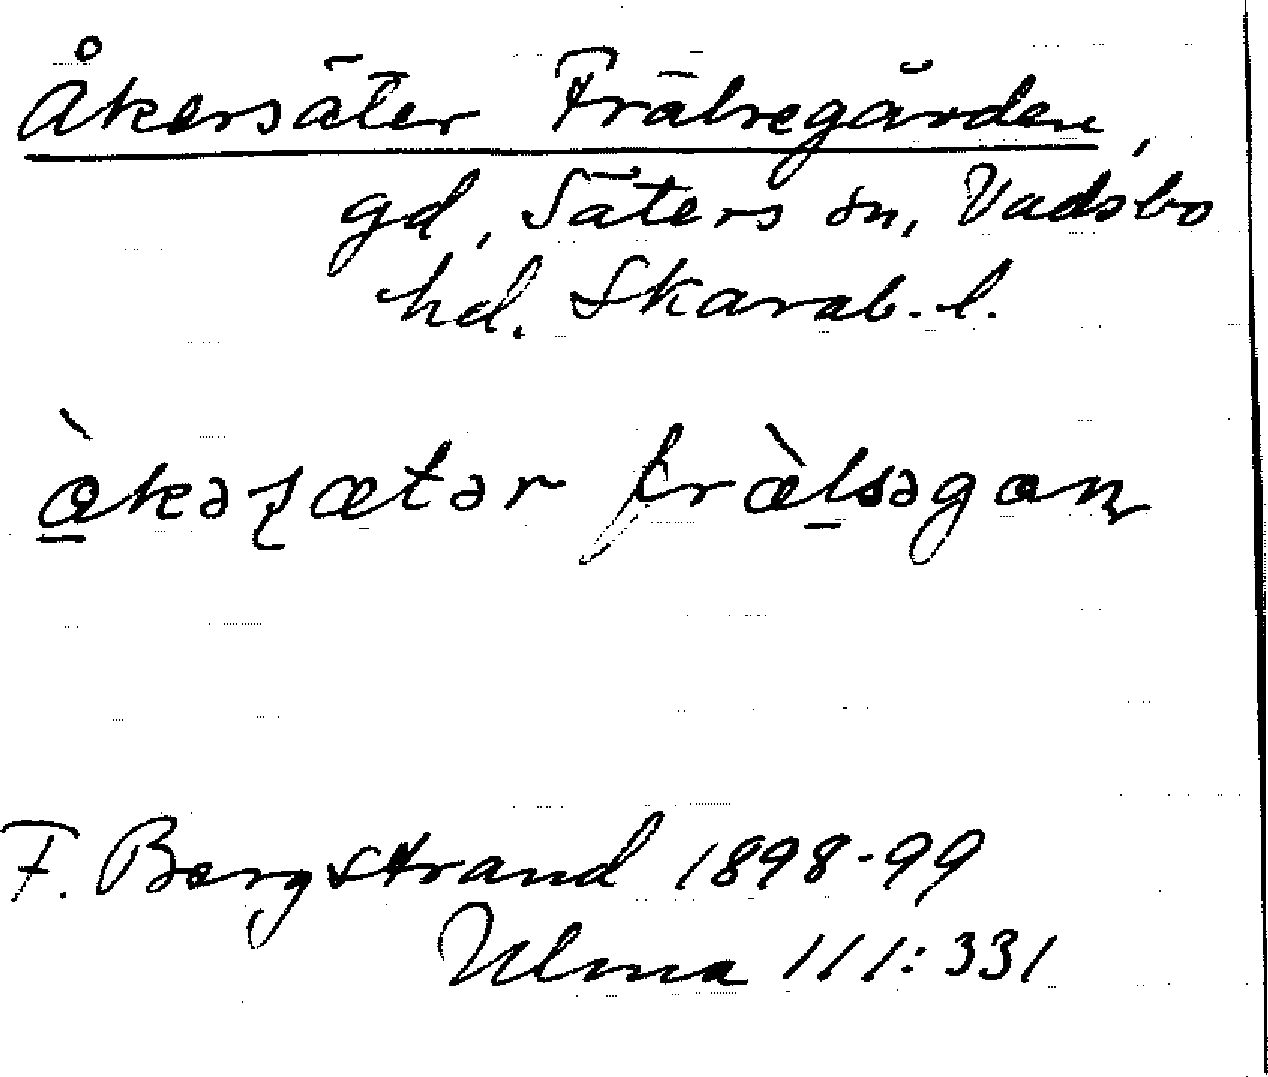 Åkersäter Frälsegården,
gd, Säters sn, Vadsbo
hd. Skarab. l.
àkəʂætər fræ̀lsəgaɳ
F. Bergstrand 1898-99
Ulma 111:331